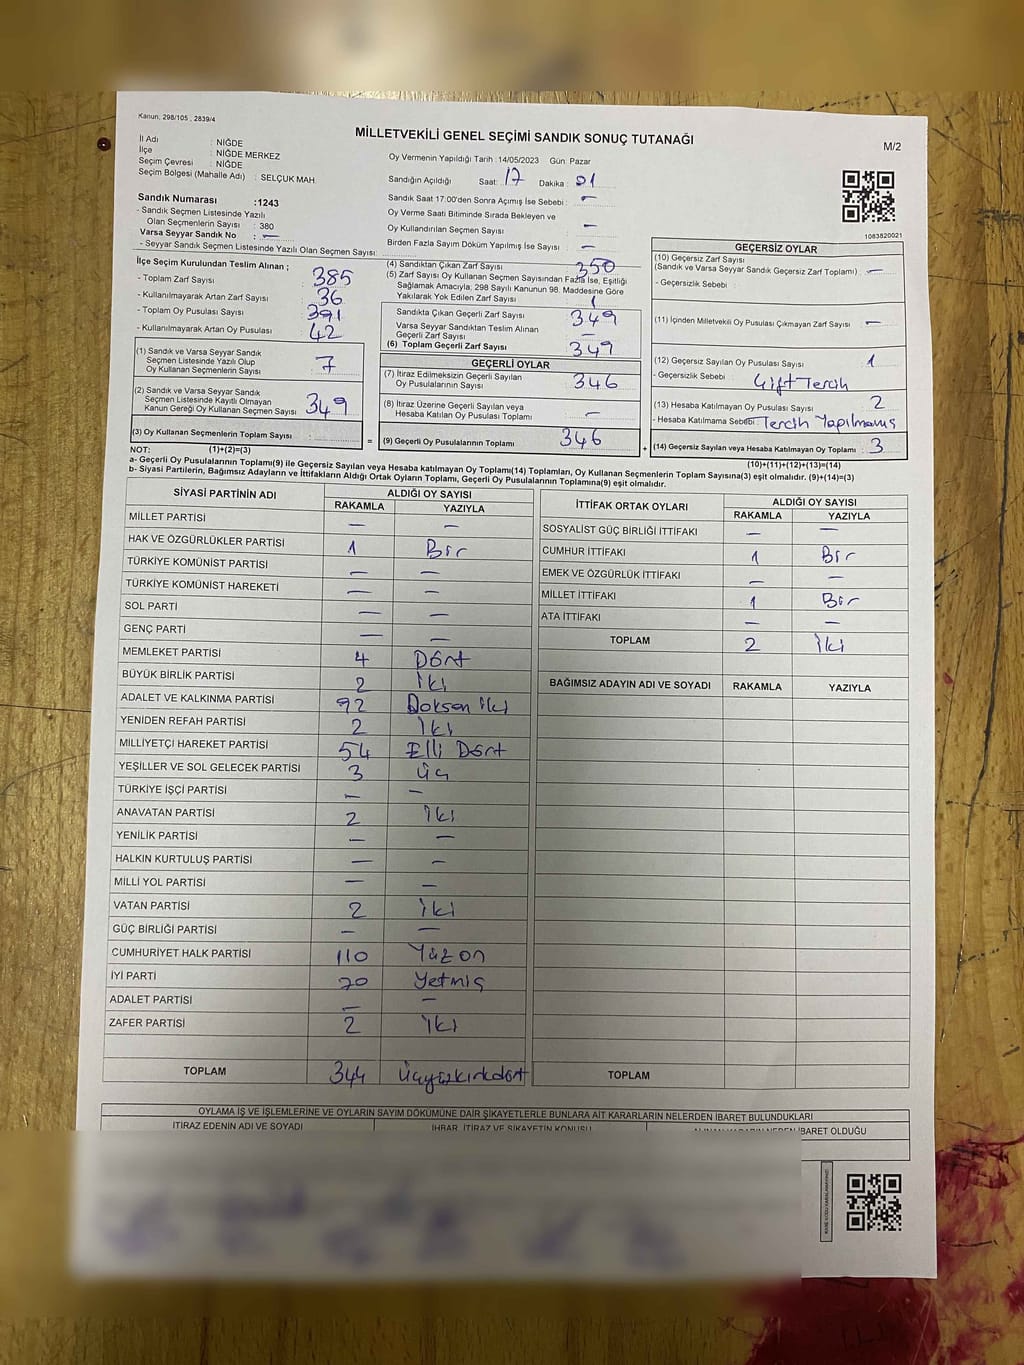 Kanun, 298/105 , 2839/4
MİLLETVEKİLİ GENEL SEÇİMİ SANDIK SONUÇ TUTANAĞI
M/2
İl Adı : NİĞDE
İlçe : NİĞDE MERKEZ
Seçim Çevresi : NİĞDE
Seçim Bölgesi (Mahalle Adı) : SELÇUK MAH.
Sandık Numarası :1243
- Sandık Seçmen Listesinde Yazılı
Olan Seçmenlerin Sayısı : 380
Varsa Seyyar Sandık No : —
- Seyyar Sandık Seçmen Listesinde Yazılı Olan Seçmen Sayısı:
Oy Vermenin Yapıldığı Tarih :14/05/2023 Gün: Pazar
Sandığın Açıldığı Saat: 17 Dakika : 01
Sandık Saat 17:00'den Sonra Açımış İse Sebebi : —
Oy Verme Saati Bitiminde Sırada Bekleyen ve
Oy Kullandırılan Seçmen Sayısı : —
Birden Fazla Sayım Döküm Yapılmış İse Sayısı : —
1083820021
İlçe Seçim Kurulundan Teslim Alınan ;
- Toplam Zarf Sayısı : 385
- Kullanılmayarak Artan Zarf Sayısı : 36
- Toplam Oy Pusulası Sayısı : 391
- Kullanılmayarak Artan Oy Pusulası : 42
(1) Sandık ve Varsa Seyyar Sandık
Seçmen Listesinde Yazılı Olup
Oy Kullanan Seçmenlerin Sayısı : 7
(2) Sandık ve Varsa Seyyar Sandık
Seçmen Listesinde Kayıtlı Olmayan
Kanun Gereği Oy Kullanan Seçmen Sayısı : 349
(3) Oy Kullanan Seçmenlerin Toplam Sayısı :
(4) Sandıktan Çıkan Zarf Sayısı : 350
(5) Zarf Sayısı Oy Kullanan Seçmen Sayısından Fazla İse, Eşitliği
Sağlamak Amacıyla; 298 Sayılı Kanunun 98. Maddesine Göre
Yakılarak Yok Edilen Zarf Sayısı : 1
Sandıkta Çıkan Geçerli Zarf Sayısı : 349
Varsa Seyyar Sandıktan Teslim Alınan
Geçerli Zarf Sayısı : —
(6) Toplam Geçerli Zarf Sayısı : 349
GEÇERLİ OYLAR
(7) İtiraz Edilmeksizin Geçerli Sayılan
Oy Pusulalarının Sayısı : 346
(8) İtiraz Üzerine Geçerli Sayılan veya
Hesaba Katılan Oy Pusulası Toplamı : —
= (9) Geçerli Oy Pusulalarının Toplamı : 346
GEÇERSİZ OYLAR
(10) Geçersiz Zarf Sayısı
(Sandık ve Varsa Seyyar Sandık Geçersiz Zarf Toplamı) : —
- Geçersizlik Sebebi :
(11) İçinden Milletvekili Oy Pusulası Çıkmayan Zarf Sayısı : —
(12) Geçersiz Sayılan Oy Pusulası Sayısı : 1
- Geçersizlik Sebebi : Çift Tercih
(13) Hesaba Katılmayan Oy Pusulası Sayısı : 2
- Hesaba Katılmama Sebebi : Tercih Yapılmamış
+ (14) Geçersiz Sayılan veya Hesaba Katılmayan Oy Toplamı : 3
NOT: (1)+(2)=(3)
(10)+(11)+(12)+(13)=(14)
a- Geçerli Oy Pusulalarının Toplamı(9) ile Geçersiz Sayılan veya Hesaba katılmayan Oy Toplamı(14) Toplamları, Oy Kullanan Seçmenlerin Toplam Sayısına(3) eşit olmalıdır. (9)+(14)=(3)
b- Siyasi Partilerin, Bağımsız Adayların ve İttifakların Aldığı Ortak Oyların Toplamı, Geçerli Oy Pusulalarının Toplamına(9) eşit olmalıdır.
SİYASİ PARTİNİN ADI ALDIĞI OY SAYISI
RAKAMLA YAZIYLA
MİLLET PARTİSİ — —
HAK VE ÖZGÜRLÜKLER PARTİSİ 1 Bir
TÜRKİYE KOMÜNİST PARTİSİ — —
TÜRKİYE KOMÜNİST HAREKETİ — —
SOL PARTİ — —
GENÇ PARTİ — —
MEMLEKET PARTİSİ 4 Dört
BÜYÜK BİRLİK PARTİSİ 2 İki
ADALET VE KALKINMA PARTİSİ 92 Doksan iki
YENİDEN REFAH PARTİSİ 2 İki
MİLLİYETÇİ HAREKET PARTİSİ 54 Elli Dört
YEŞİLLER VE SOL GELECEK PARTİSİ 3 üç
TÜRKİYE İŞÇİ PARTİSİ — —
ANAVATAN PARTİSİ 2 İki
YENİLİK PARTİSİ — —
HALKIN KURTULUŞ PARTİSİ — —
MİLLİ YOL PARTİSİ — —
VATAN PARTİSİ 2 İki
GÜÇ BİRLİĞİ PARTİSİ — —
CUMHURİYET HALK PARTİSİ 110 Yüzon
İYİ PARTİ 70 Yetmiş
ADALET PARTİSİ — —
ZAFER PARTİSİ 2 İki
TOPLAM 344 Üçyüzkırkdört
İTTİFAK ORTAK OYLARI ALDIĞI OY SAYISI
RAKAMLA YAZIYLA
SOSYALİST GÜÇ BİRLİĞİ İTTİFAKI — —
CUMHUR İTTİFAKI 1 Bir
EMEK VE ÖZGÜRLÜK İTTİFAKI — —
MİLLET İTTİFAKI 1 Bir
ATA İTTİFAKI — —
TOPLAM 2 İki
BAĞIMSIZ ADAYIN ADI VE SOYADI RAKAMLA YAZIYLA
TOPLAM
OYLAMA İŞ VE İŞLEMLERİNE VE OYLARIN SAYIM DÖKÜMÜNE DAİR ŞİKAYETLERLE BUNLARA AİT KARARLARIN NELERDEN İBARET BULUNDUKLARI
İTİRAZ EDENİN ADI VE SOYADI İHBAR, İTİRAZ VE ŞİKAYETİN KONUSU ALINAN KARARIN NEDEN İBARET OLDUĞU